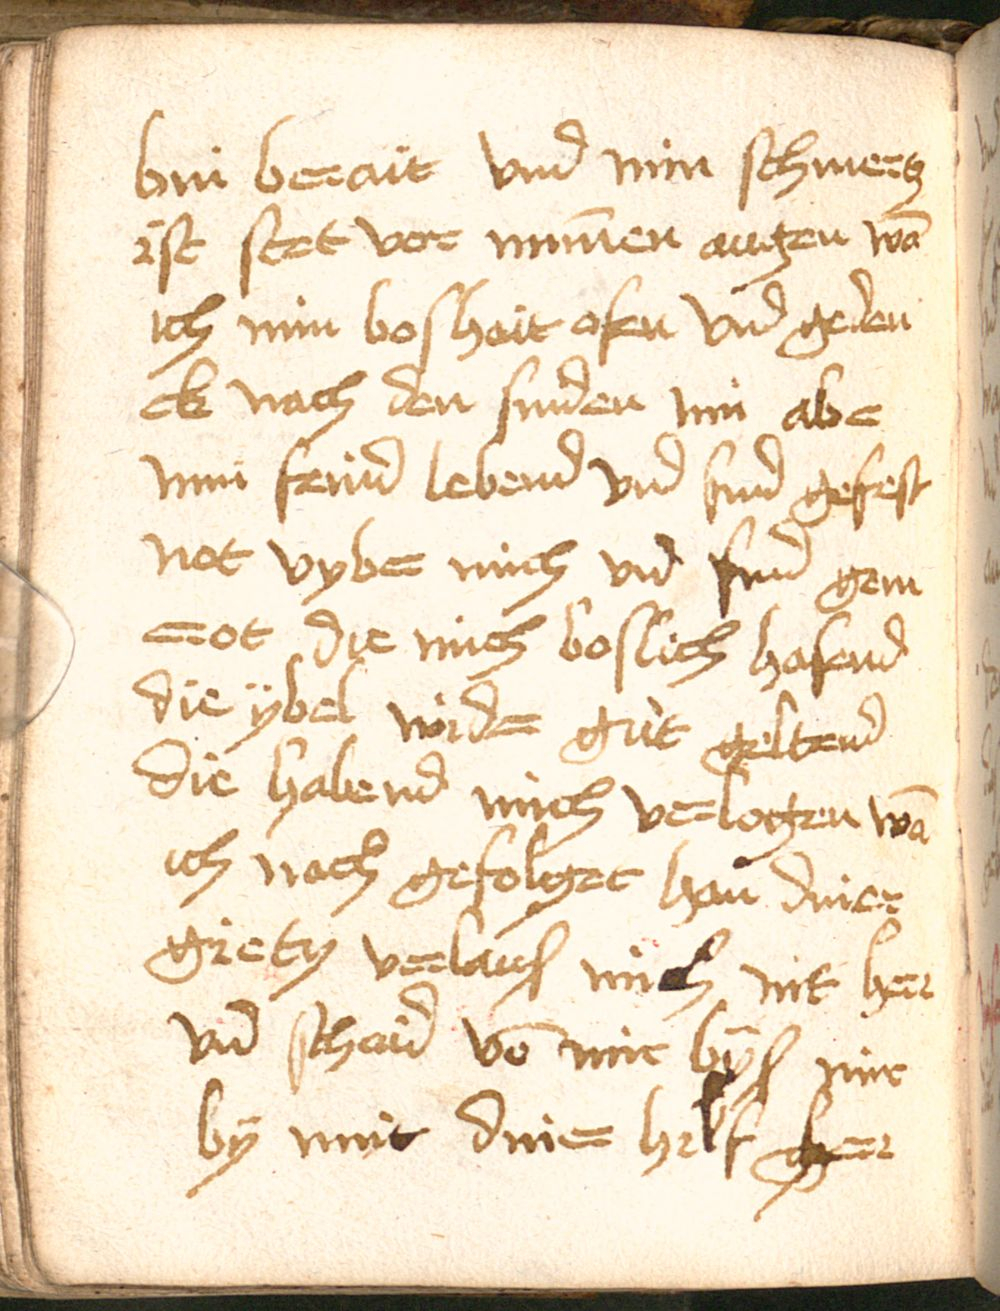 bin berait vnd min schmertz
ist stet vor minnen augen wā
ich min bosheit ofen vnd geden
ck nach den sunden min aber
min feind lebend vnd sind gefest
not vyber mich vnd sind gem
erot die mich boslich hasend
die ÿbel wider gut geltend
die habend mich verlogen wā
ich nach gefolget han diner
griety verlaus mich nit herr
vnd schaid vō mir bÿs mir
bÿ mit diner helf herr